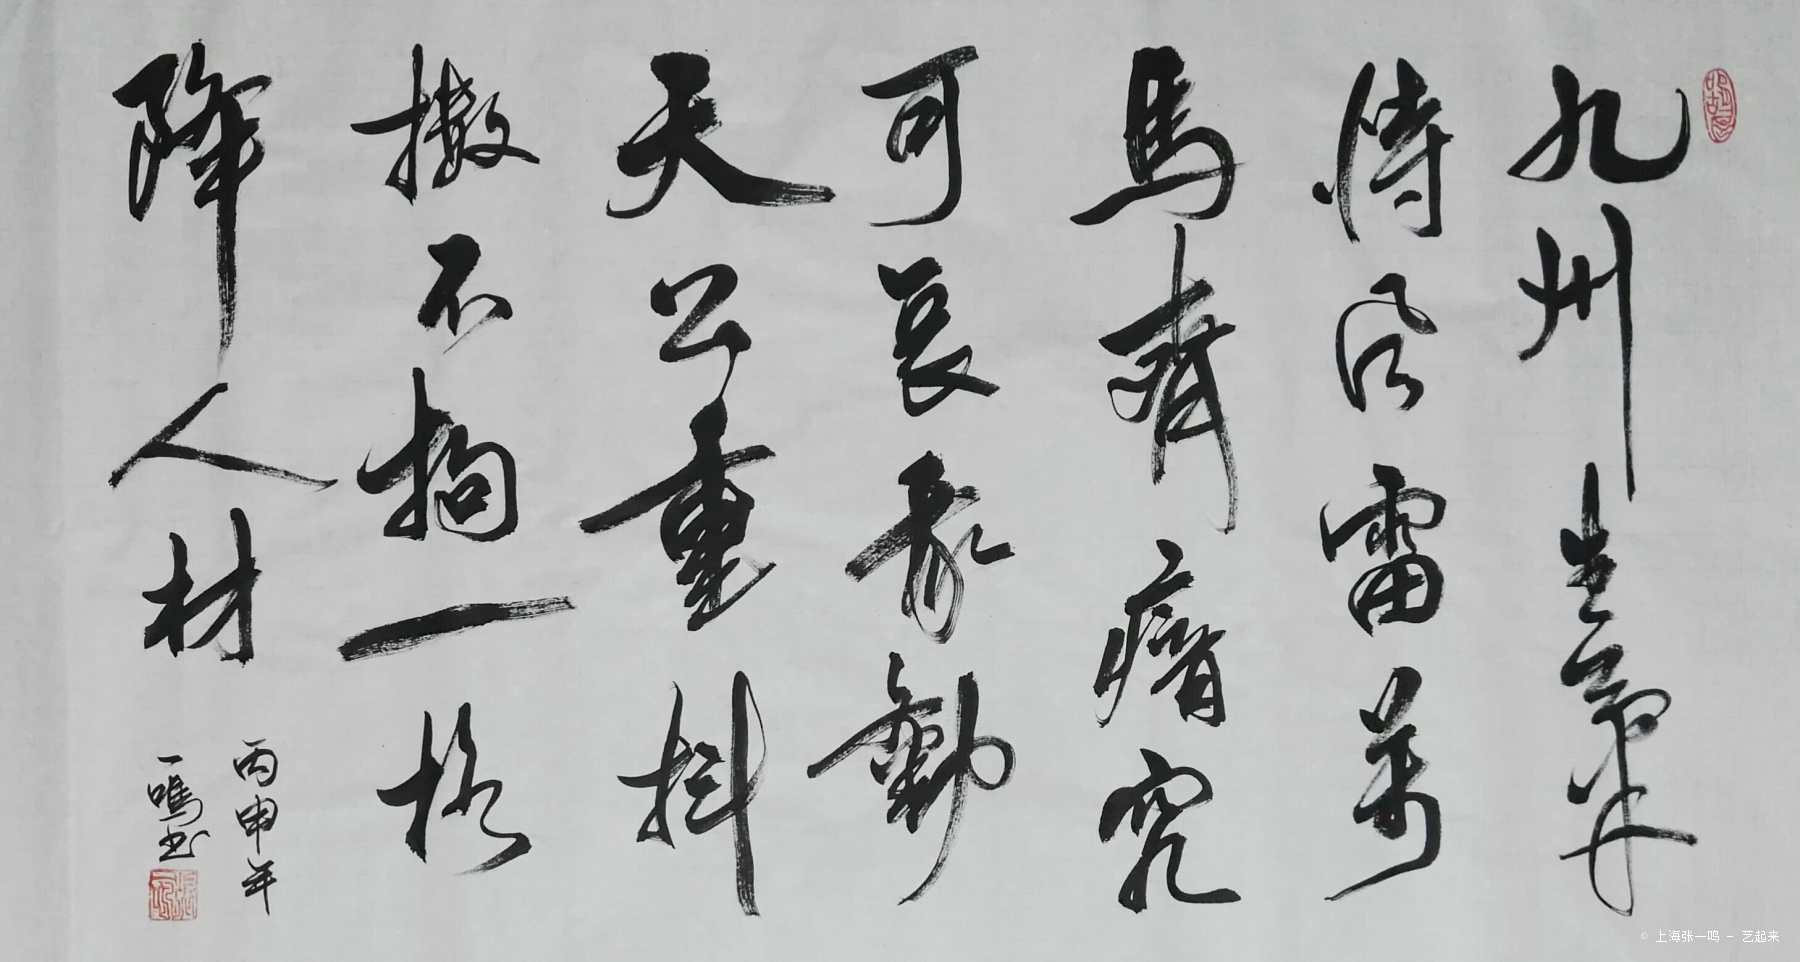 九州生氣
恃风雷萬
馬齊瘖究
可哀我勸
天公重抖
擻不拘一格
降人材
丙申年
一鳴书
© 上海张一鸣 - 艺起来